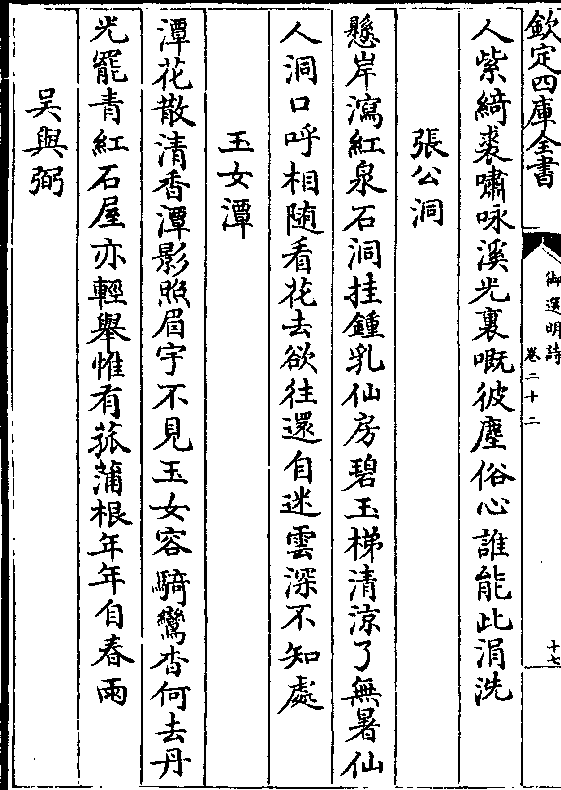 欽定四庫全書
御選明詩
卷二十二
十七
人紫綺裘嘯咏溪光裏嘅彼塵俗心誰能此涓洗
張公洞
懸岸瀉紅泉石洞挂鍾乳仙房碧玉梯清涼了無暑仙
人洞口呼相随看花去欲往還自迷雲深不知處
玉女潭
潭花散清香潭影照眉宇不見玉女容騎鸞杳何去丹
光罷青紅石屋亦輕舉惟有菰蒲根年年自春雨
吴與弼